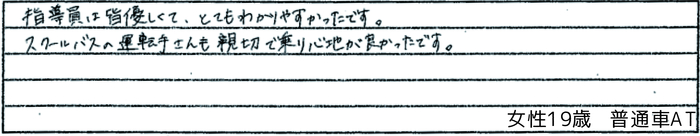 指導員は皆優しくて、とてもわかりやすかったです。
スクールバスの運転手さんも親切で乗り心地が良かったです。
女性19歳　普通車AT